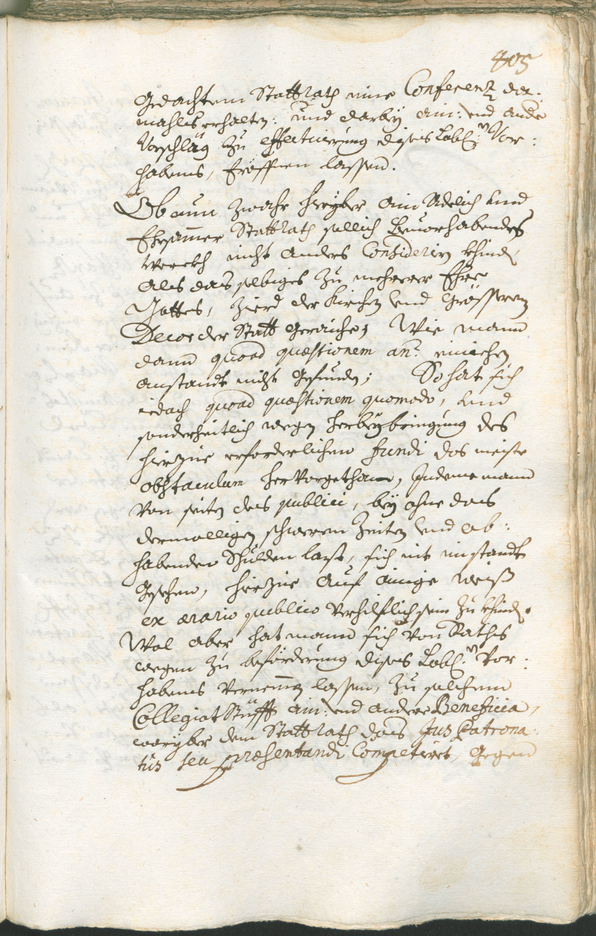 405
gedachtem Stattrath eine Conferenz da:
mahls erhalten: und darby ain: und ande
Vorschläg zu effectuierung dises Lobl: Vor:
habens, eröffnen lassen.
Ob nun zwahr hieryber ain Adelich und
Ehrsamer Stattrath sollich bevorhabendes
werckh nicht anders Considerirn khind
als das selbiges zu mehrerer Ehre
Gottes, Zierd der Kirchen und grösseren
Decor der Statt geraiche; Wie mann
dann quoad quæstionem an: einichen
anstandt nicht gefunden; So hat sich
iedoch quoad quæstionem quomodo, und
sonderheitlich wegen herbeybringung des
hierzue erforderlichen fundi das maiste
obstaculum hervorgethan, Indeme mann
von seiten des publici, bey ohne das
dermalligen schweren Zeiten und ob:
habenden Schulden last, sich nit im standt
gesehen, hierzue auf ainige weiß
ex ærario publico verhilflich sein zu khinde.
Wol aber hat mann sich von Raths
wegen zu beförderung dises Lobl: Vor:
habens vernemen lassen, zu solchem
Collegiat Stüfft ain: und andere Beneficia,
woryber dem Stattrath das Jus Patrona:
tus seu præsentandi Competiert, gegen